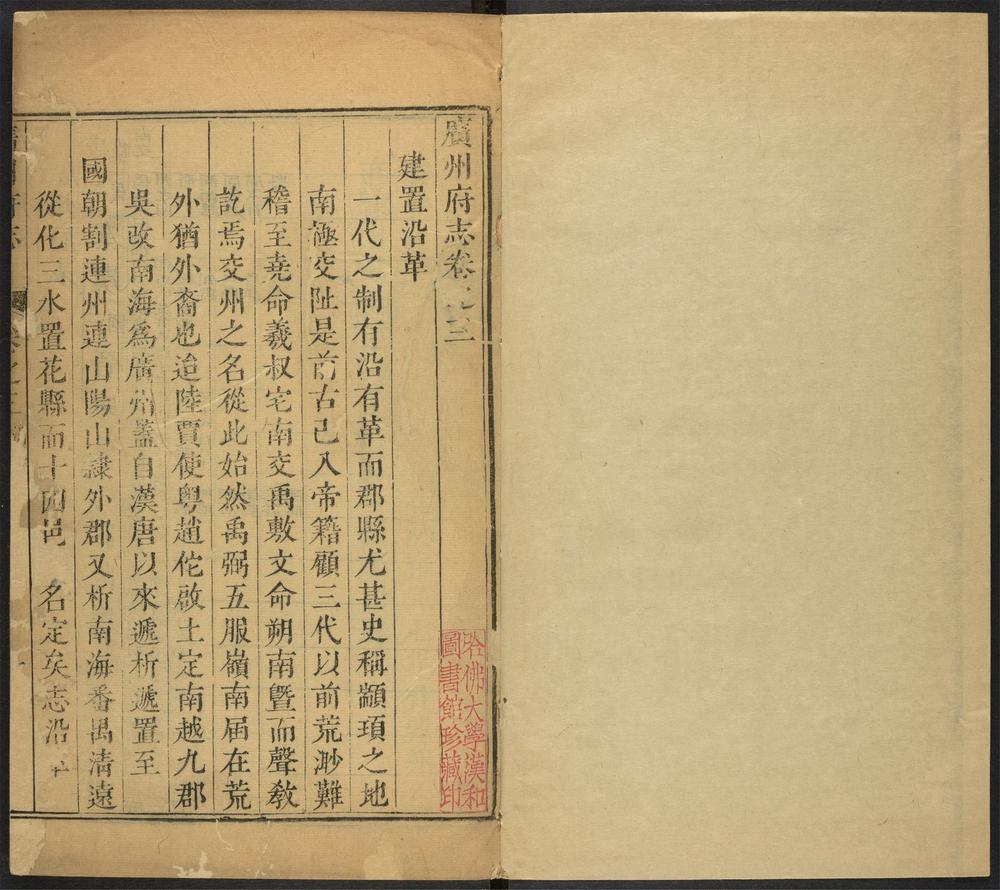 廣州府志卷之三
建置沿革
一代之制有沿有革而郡縣尤甚史稱顓頊之地
南極交阯是前古已入帝籍顧三代以前荒渺難
稽至堯命羲叔宅南交禹敷文命朔南曁而聲敎
訖焉交州之名從此始然禹弼五服嶺南届在荒
外猶外裔也迨陸賈使粤趙佗啟土定南越九郡
吳改南海爲廣州蓋自漢唐以來遞析遞置至
國朝割連州連山陽山隷外郡又析南海番禺清遠
從化三水置花縣而十四邑名定矣志沿
哈佛大學漢和
圖書館珍藏印